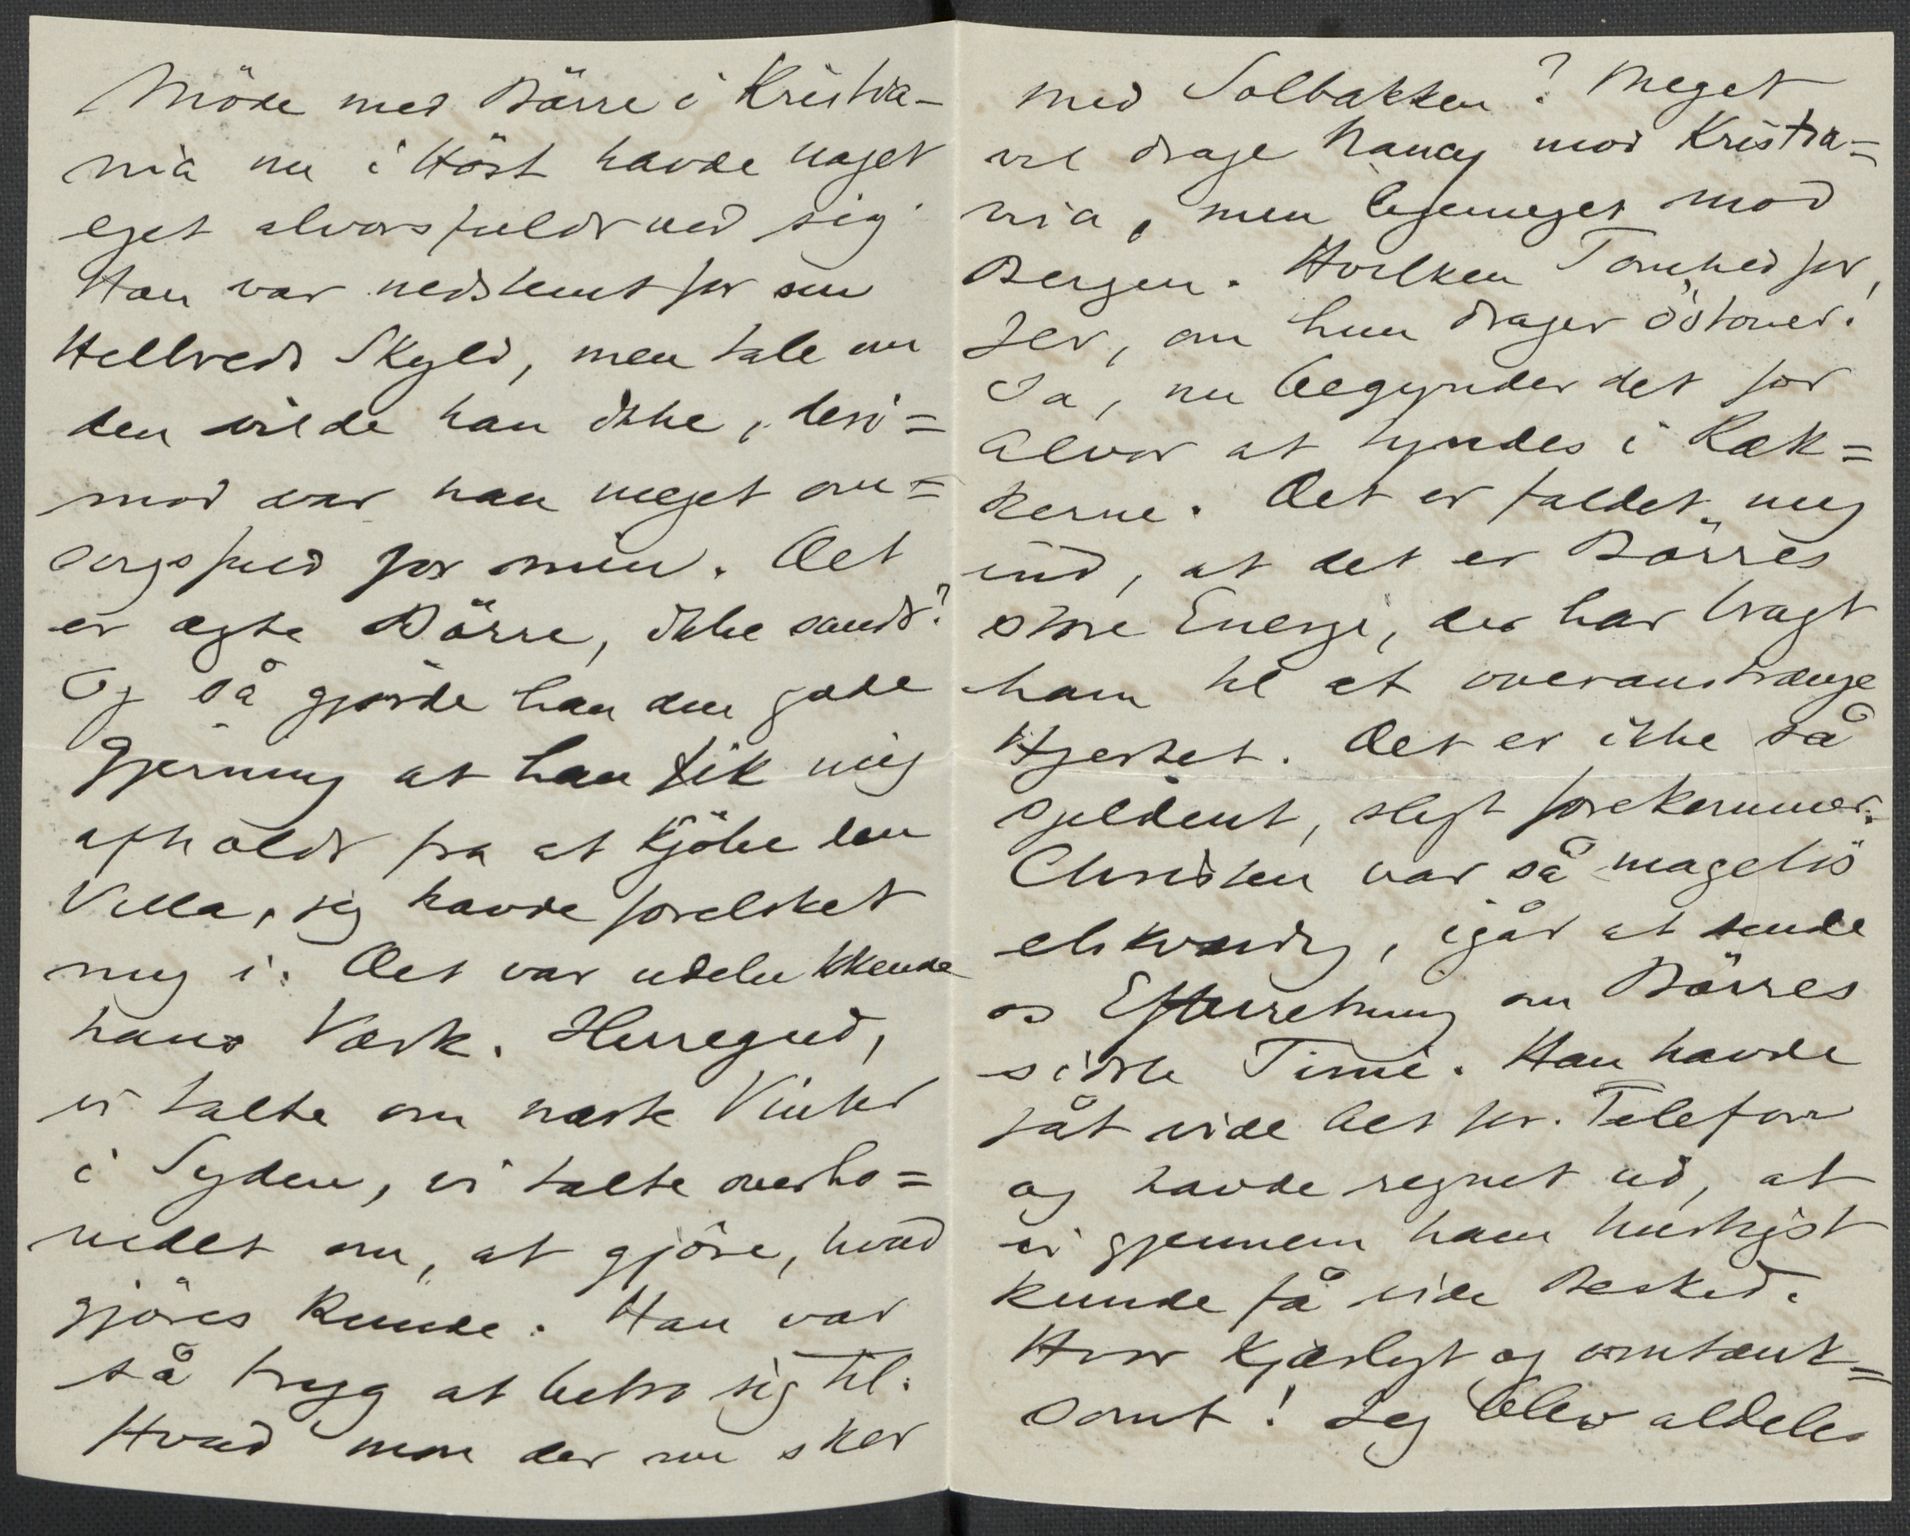 Möde med Börre i Kristia-
nia nu i Höst havde noget
eget alvorsfuldt ved sig
Han var nedstemt for sin
Helbreds Skyld, men tale om
den vilde han ikke, deri=
mod var han meget om=
sorgsfuld for min. Det
er ægte Börre, ikke sandt?
Og så gjorde han den gode
Gjerning at han fik mig
afholdt fra at kjöbe den
Villa, jeg havde forelsket
mig i. Det var udelukkende
hans Værk. Herregud,
vi talte om næste Vinter
i Syden, vi talte overho=
vedet om, at gjöre, hvad
gjöres kunde. Han var
så tryg at betro sig til.
Hvad mon der nu sker
med Solbakken? Meget
vil drage Nancy mod Kristia=
nia, men ligemeget mod
Bergen. Hvilken Tomhed for
Jer, om hun drager östover.
Ja, nu begynder det for
Alvor at tyndes i Ræk=
kerne. Det er faldet mig
ind, at det er Börres
store Energi, der har bragt
ham til at overanstrænge
Hjertet. Det er ikke så
sjeldent, sligt forekommer.
Christen var så magelös
elskværdig, igår at sende
os Efterretning om Börres
sidste Time. Han havde
fåt vide det pr. Telefon
og havde regnet ud, at
vi gjennem ham hurtigst
kunde få vide Besked.
Hvor kjærligt og omtænk=
somt! Jeg blev aldeles